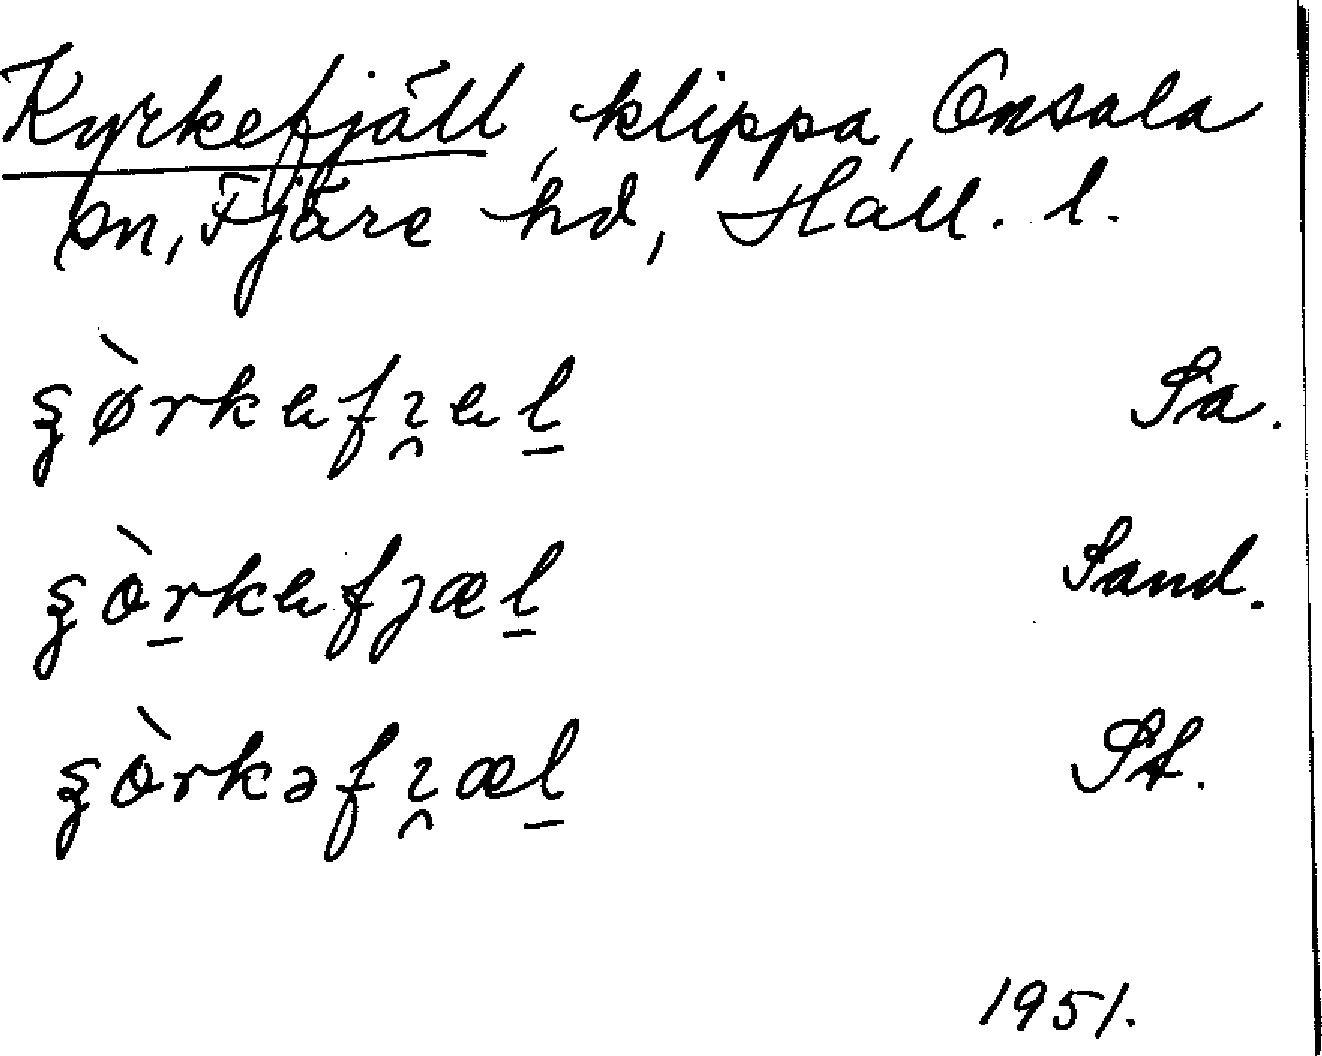 Kyrkefjäll, klippa, Onsala
sn, Fjäre hd, Hall. l.
ʂø̀rkefı̯el̠ Sa.
ʂòr̠kefjæl̠ Sand.
ʂòrkəfı̯æl̠ St.
1951.